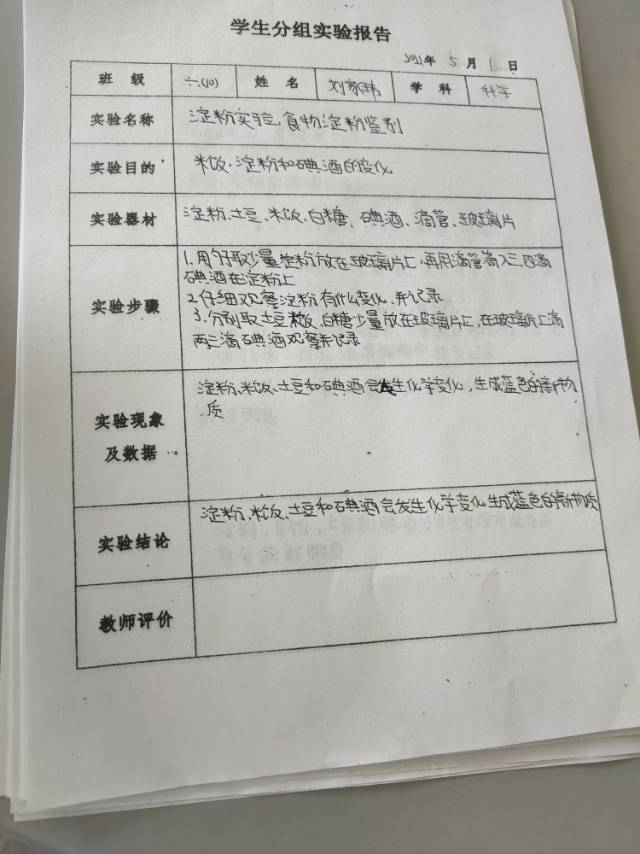 学生分组实验报告
2021年 5月 1 日
班级 六(10) 姓名 刘家玮 学科 科学
实验名称 淀粉实验 食物淀粉鉴别
实验目的 米饭、淀粉和碘酒的变化
实验器材 淀粉、土豆、米饭、白糖、碘酒、滴管、玻璃片
1.用勺子取少量淀粉放在玻璃片上,再用滴管滴入三四滴
碘酒在淀粉上
实验步骤 2.仔细观察淀粉有什么变化,并记录
3.分别取土豆、米饭、白糖少量放在玻璃片上,在玻璃片上滴
两三滴碘酒观察并记录
淀粉、米饭、土豆和碘酒会发生化学变化,生成蓝色的新物
质
实验现象
及数据
淀粉、米饭、土豆和碘酒会发生化学变化生成蓝色的新物质
实验结论
教师评价